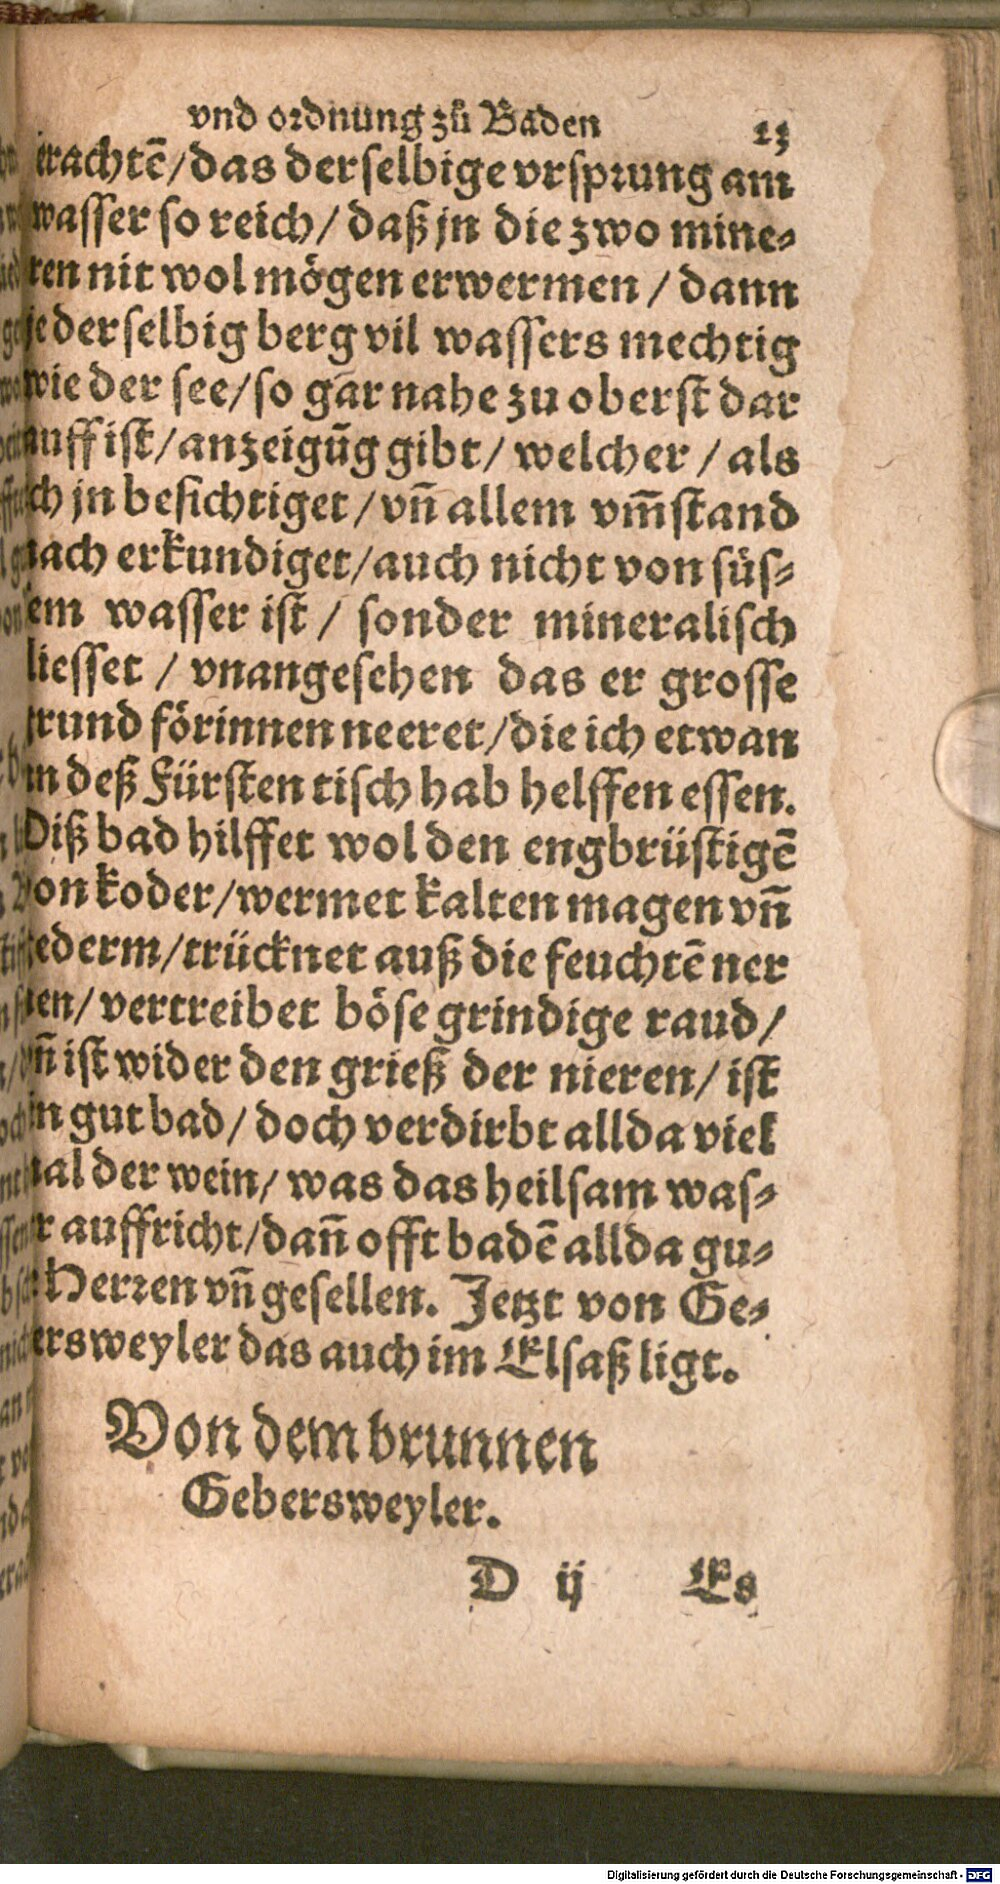 vnd ordnung zů Baden 23
erachtē/das derselbige vrsprung am
wasser so reich/ daß jn die zwo mine-
ren nit wol mögen erwermen / dann
je derselbig berg vil wassers mechtig
wie der see/so gar nahe zu oberst dar
auff ist/anzeigūg gibt/ welcher / als
ich jn besichtiget/vñ allem vm̄stand
nach erkundiget/auch nicht von süs-
sem wasser ist / sonder mineralisch
fliesset / vnangesehen das er grosse
rund förinnen neeret/die ich etwan
an deß Fürsten tisch hab helffen essen.
Diß bad hilffet wol den engbrüstigē
von koder/wermet kalten magen vñ
gederm/trücknet auß die feuchtē ner
uen/ vertreibet böse grindige raud/
vñ ist wider den grieß der nieren/ ist
ein gut bad/ doch verdirbt allda viel
mal der wein/ was das heilsam was-
ser auffricht/dañ offt badē allda gu-
te Herren vñ gesellen. Jetzt von Ge-
bersweyler das auch im Elsaß ligt.
Von dem brunnen
Gebersweyler.
D ij Es
Digitalisierung gefördert durch die Deutsche Forschungsgemeinschaft - DFG